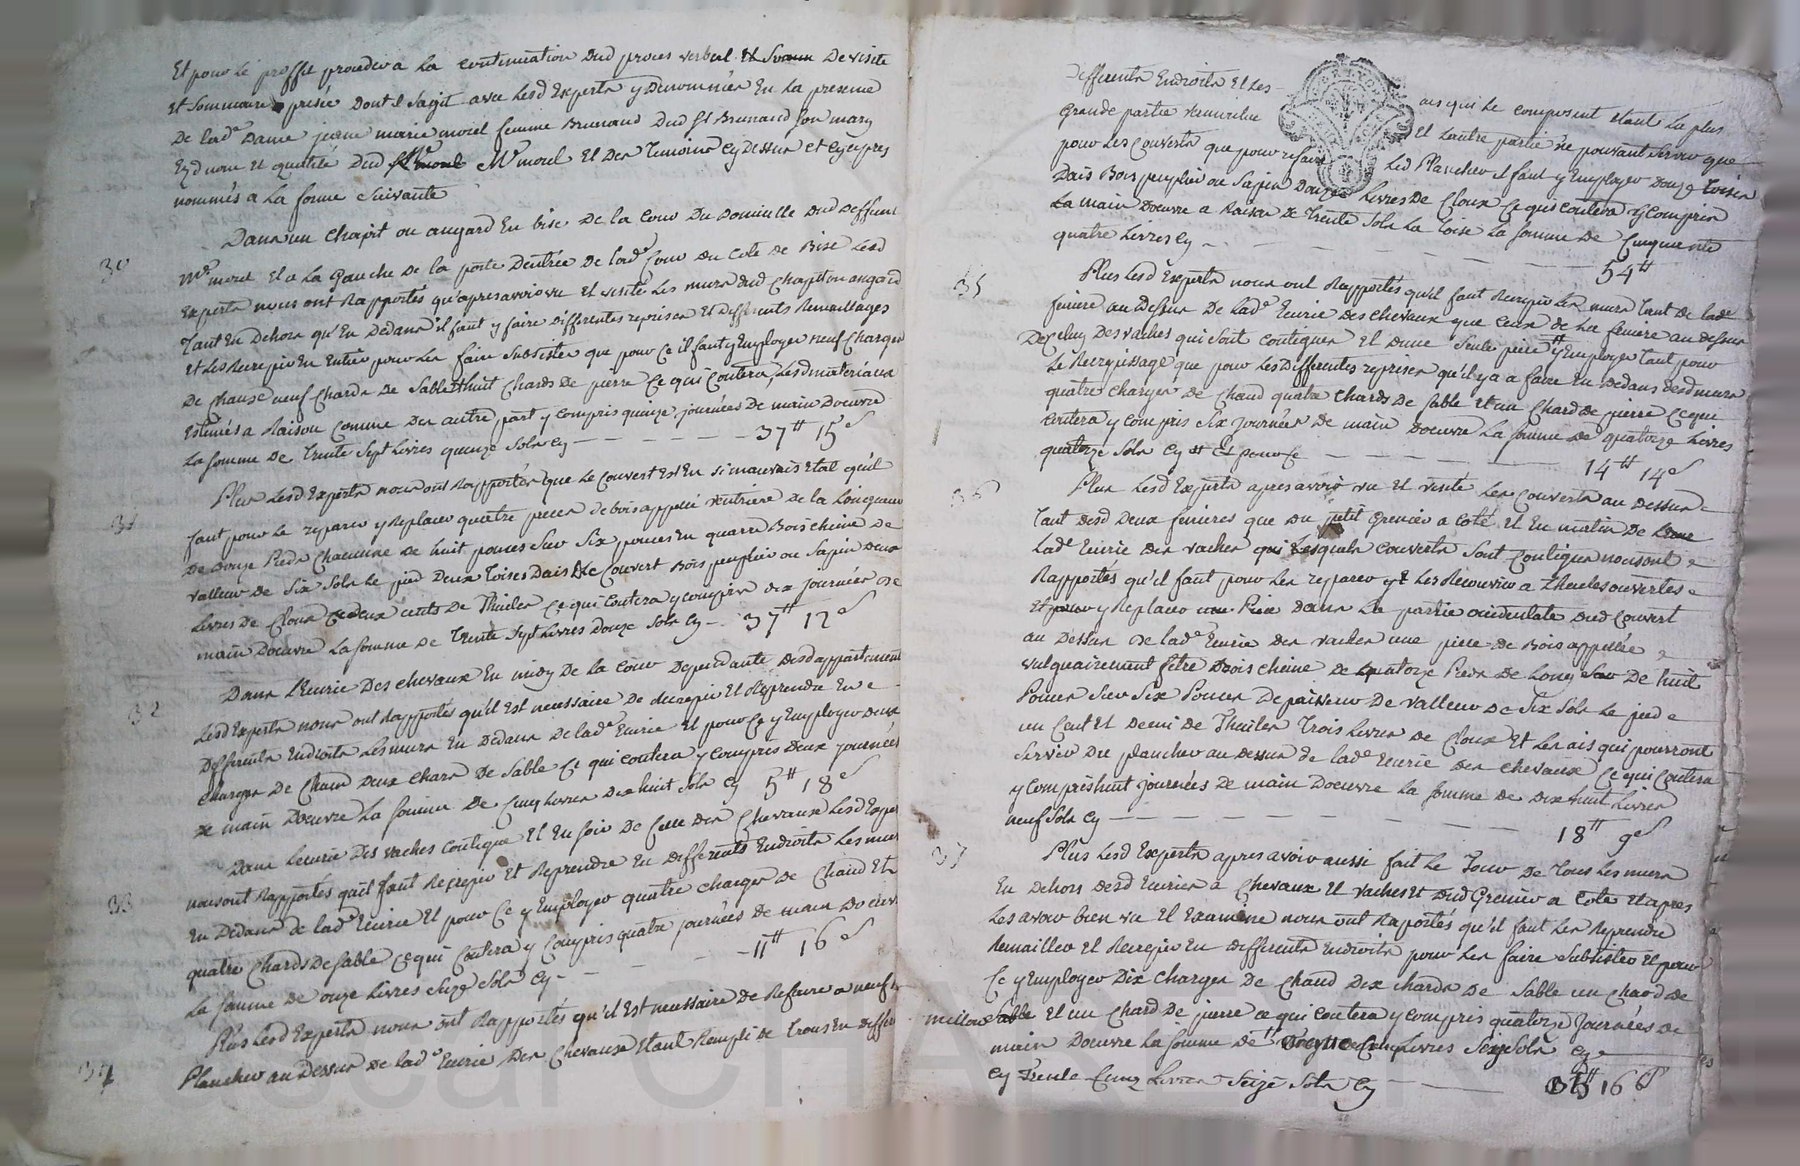 Et pour le proffit procedera a la continuation dud proces verbal de visite
et sommaire prisée dont il sagit avec lesd Experts y denommés En la presence
de lad.e dame jeane marie morel femme Brunaud dud Sr Brunaud son mary
Eyd nom et qualité dud Mr morel Et des temoins cy dessus et cy apres
nommés a la forme suivante
30
Dans un chapit ou angard En bise de la Cour du Domicille dud deffunt
Mr morel Et a la Gauche de la porte dentrée de lad.e Cour du Coté de Bise Lesd
Experts nous ont Rapportés qu'apres avoir vu Et visité les murs dud Chapit ou angard
tant En dehors qu'En dedans il faut y faire differentes reprises Et differents Remaillages
et les Recrepir En Entier pour les faire subsister que pour ce il faut y Employer neuf Charges
de chaux neuf Chards de sable Et huit Chards de pierre ce qui Coutera, lesd matériaux
Estimés a Raison comme des autre part y compris quinze journées de main doeuvre
La somme de trente sept Livres quinze sols cy — 37tt 15s
31
Plus lesd Experts nous ont Rapportés que le couvert Est En si mauvais Etat qu'il
faut pour le reparer y Replacer quatre pieces de bois appellé ventriere de la Longueur
de douze Pieds chaqune de huit pouces sur six pouces En quarré Bois cheine de
valleur de six sols le pied deux toises Dais de couvert Bois peuplier ou sapin deux
livres de cloux deux cents de Thuiles ce qui coutera y compris dix journées de
main doeuvre La somme de trente sept Livres douze sols cy — 37tt 12s
32
Dans l'Ecurie des chevaux En midy de la Cour dependante desd appartements
Lesd Experts nous ont Rapportés qu'il Est necessaire de decrepir Et Reprendre En
differents Endroits les murs En dedans de lad.e Ecurie Et pour ce y Employer deux
charges de Chaux deux chars de Sable ce qui coutera y compris deux journées
de main doeuvre La somme de Cinq Livres dix huit sols cy 5tt 18s
33
Dans lecurie des vaches contigue Et En soir de Celle des Chevaux Lesd Exper
nous ont Rapportés quil faut Recrepir Et Reprendre En differents Endroits les murs
En dedans de lad.e Ecurie Et pour ce y Employer quatre charges de Chaud Et
quatre Chards de sable ce qui Coutera y Compris quatre journées de main doeuvre
La somme de onze Livres Seize sols cy — 11tt 16s
34
Plus lesd Experts nous ont Rapportés qu'il Est necessaire de Refaire a neuf le
Plancher au dessus de lad.e Ecurie des Chevaux Etant Rempli de Trous En differ
differents Endroits Et les ais qui le composent Etant la plus
Grande partie vermoulue Et lautre partie ne pouvant servir que
pour les Couverts que pour refaire led Plancher il faut y Employer douze toises
Dais Bois peuplier ou sapin douze Livres de Cloux ce qui coutera y compris
La main doeuvre a Raison de trente sols la toise La somme de Cinquante
quatre Livres cy — 54tt
35
Plus lesd Experts nous ont Rapportés qu'il faut Recrepir les murs tant de lad.e
feniere au dessus de lad.e Ecurie des chevaux que ceux de la feniere au dessus
De celuy des vaches qui sont contigues Et d'une seule piece Et y Employer tant pour
le Recrepissage que pour les differentes reprises qu'il y a a faire En dedans desd murs
quatre charges de chaud quatre Chards de sable et un Chard de pierre ce qui
coutera y compris six journées de main doeuvre La somme de quatorze Livres
quatorze sols cy Et pour ce — 14tt 14s
36
Plus lesd Experts apres avoir vu Et visité les couverts au dessus
tant desd deux fenieres que du petit Grenier a coté Et En matin de
lad.e Ecurie des vaches lesquels couverts sont Contigus nous ont
Rapportés qu'il faut pour les reparer les Recouvrir a thuiles ouvertes
Et y Replacer dans la partie occidentale dud couvert
au dessus de lad.e Ecurie des vaches une piece de Bois appellée
vulgairement fêtre Bois cheine de quatorze Pieds de Long de huit
Pouces sur six Pouces Depaisseur de valleur de six sols le pied
un Cent Et demi de Thuiles trois Livres de Cloux Et les ais qui pourront
servir du plancher au dessus de lad.e Ecurie des chevaux ce qui coutera
y compris huit journées de main doeuvre La somme de dix huit Livres
neuf sols cy — 18tt 9s
37
Plus lesd Experts apres avoir aussi fait le tour de tous les murs
En dehors desd Ecuries a chevaux Et vaches Et dud Grenier a coté Et apres
les avoir bien vu Et Examiné nous ont Raportés qu'il faut les Reprendre
Remailler Et Recrepir En differents Endroits pour les faire subsister Et pour
ce y Employer dix charges de Chaud dix chards de sable un Chard de
Et un Chard de pierre ce qui coutera y compris quatorze journées de
main doeuvre La somme de Livres Seize Sols cy
cy trente Cinq Livres Seize sols cy — 35tt 16s